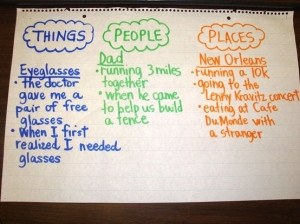 THINGS
Eyeglasses
• the doctor
gave me a
pair of free
glasses
• when I first
realized I needed
glasses
PEOPLE
Dad
• running 3 miles
together
• when he came
to help us build
a fence
PLACES
New Orleans
• running a 10K
• going to the
Lenny Kravitz concert
• eating at Cafe
DuMonde with
a stranger